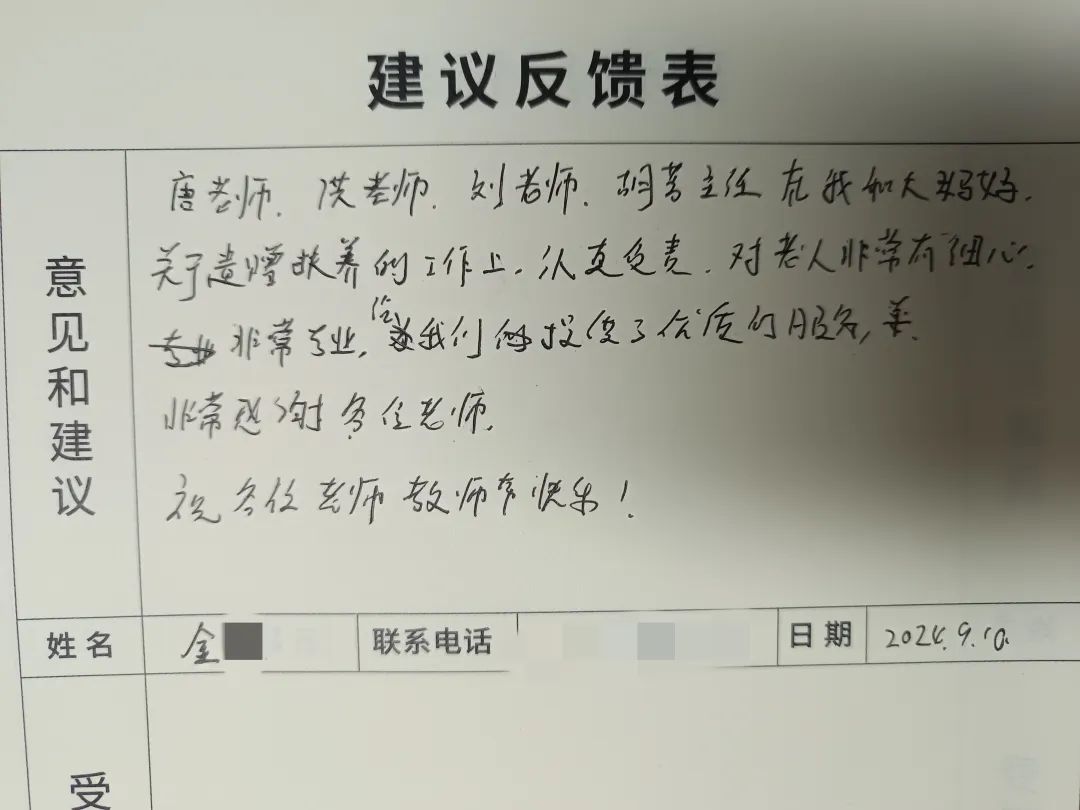 建议反馈表
意见和建议
唐老师、洪老师、刘老师、胡菁主任在我和大妈妈,
关于遗赠扶养的工作上,认真负责,对老人非常有细心,
非常专业,给我们提供了优质的服务,
非常感谢各位老师,
祝各位老师教师节快乐!
姓名 金
联系电话
日期 2024.9.10
受